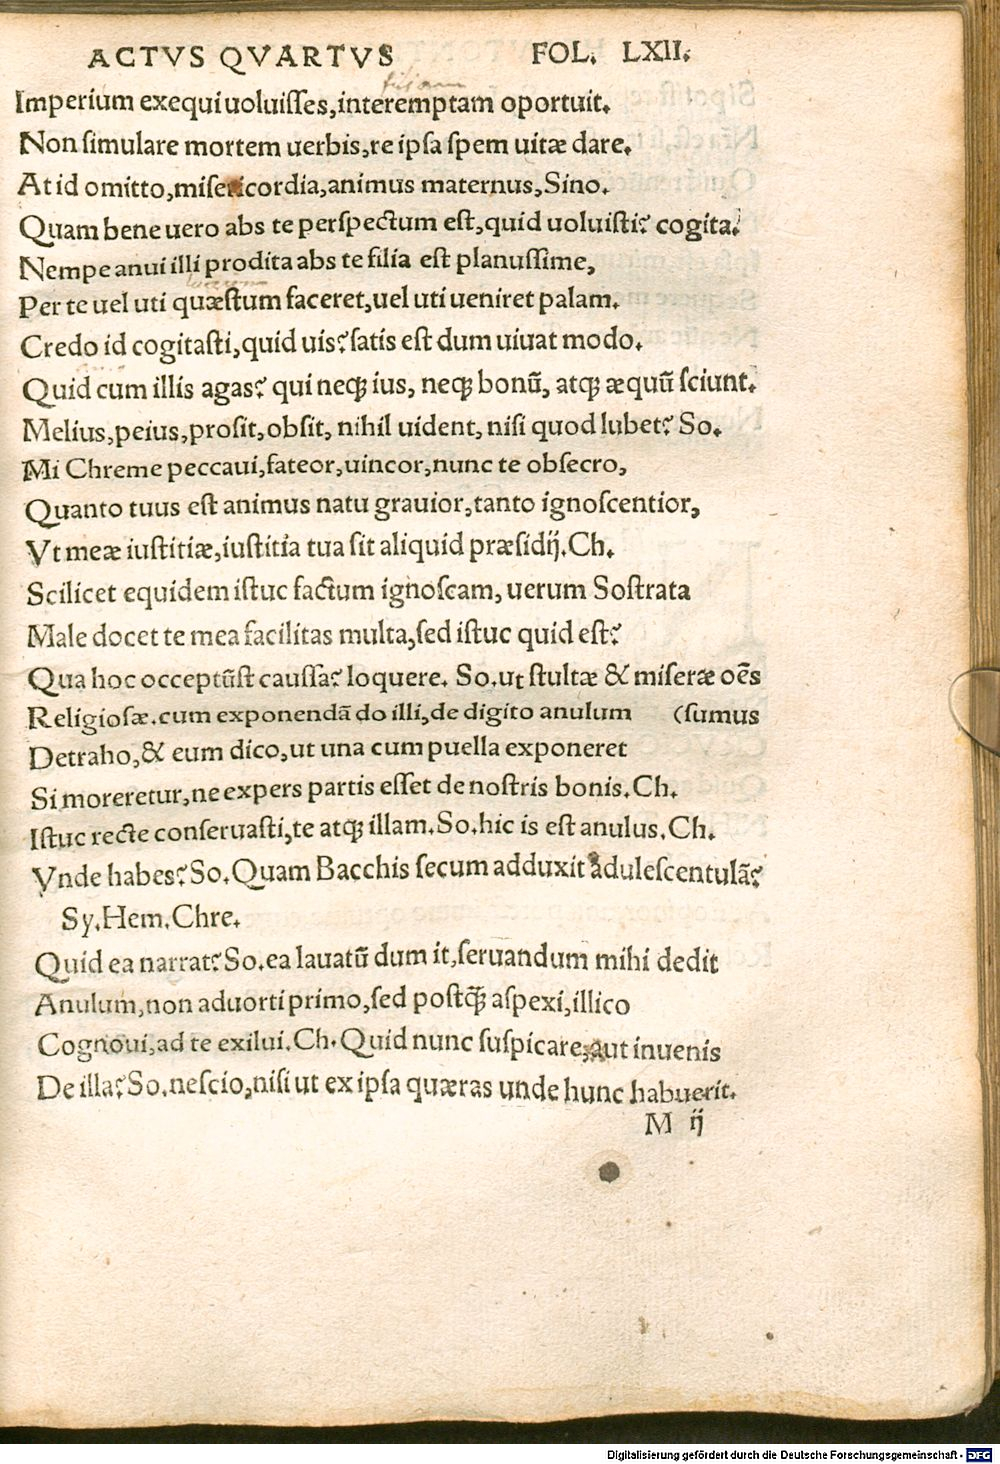 ACTVS QVARTVS FOL. LXII.
filiam
Imperium exequi uoluisses, interemptam oportuit.
Non simulare mortem uerbis, re ipsa spem uitæ dare.
At id omitto, misericordia, animus maternus, Sino.
Quam bene uero abs te perspectum est, quid uoluisti? cogita.
Nempe anui illi prodita abs te filia est planussime,
Per te uel uti quæstum faceret, uel uti ueniret palam.
Credo id cogitasti, quid uis? satis est dum uiuat modo.
Quid cum illis agas? qui neqꝫ ius, neqꝫ bonū, atqꝫ æquū sciunt.
Melius, peius, prosit, obsit, nihil uident, nisi quod lubet? So.
Mi Chreme peccaui, fateor, uincor, nunc te obsecro,
Quanto tuus est animus natu grauior, tanto ignoscentior,
Vt meæ iustitiæ, iustitia tua sit aliquid præsidij. Ch.
Scilicet equidem istuc factum ignoscam, uerum Sostrata
Male docet te mea facilitas multa, sed istuc quid est?
Qua hoc occeptūst caussa? loquere. So. ut stultæ & miseræ oēs
Religiosæ. cum exponendā do illi, de digito anulum (sumus
Detraho, & eum dico, ut una cum puella exponeret
Si moreretur, ne expers partis esset de nostris bonis. Ch.
Istuc recte conseruasti, te atqꝫ illam. So. hic is est anulus. Ch.
Vnde habes? So. Quam Bacchis secum adduxit adulescentulā?
Sy. Hem. Chre.
Quid ea narrat? So. ea lauatū dum it, seruandum mihi dedit
Anulum, non aduorti primo, sed postqꝫ̄ aspexi, illico
Cognoui, ad te exilui. Ch. Quid nunc suspicare, aut inuenis
De illa? So. nescio, nisi ut ex ipsa quæras unde hunc habuerit.
M ij
Digitalisierung gefördert durch die Deutsche Forschungsgemeinschaft - DFG